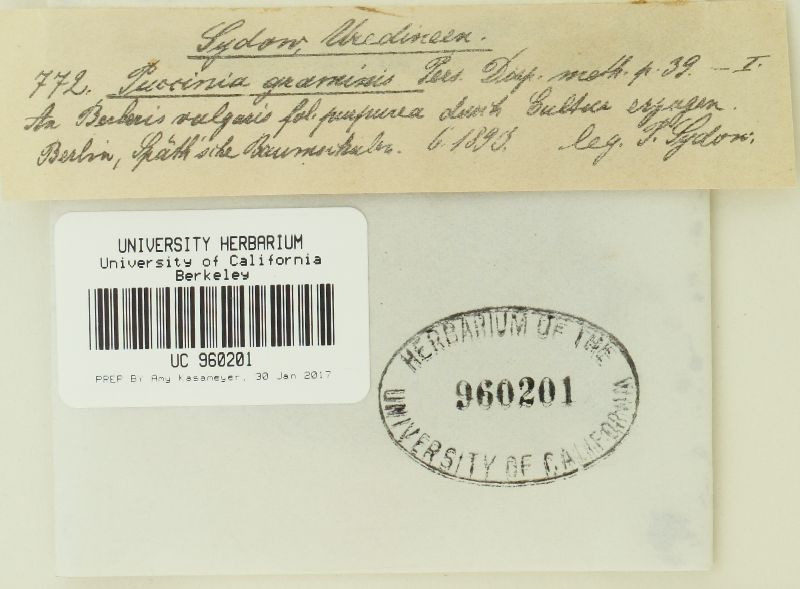 Sydow, Uredineen.
772. Puccinia graminis Pers. Disp. meth. p. 39. — I.
An Berberis vulgaris fol. purpurea durch Cultur erzogen.
Berlin, Späth'sche Baumschulen. 6. 1893. leg. P. Sydow.
UNIVERSITY HERBARIUM
University of California
Berkeley
UC 960201
PREP By Amy Kasameyer, 30 Jan 2017
HERBARIUM OF THE
960201
UNIVERSITY OF CALIFORNIA